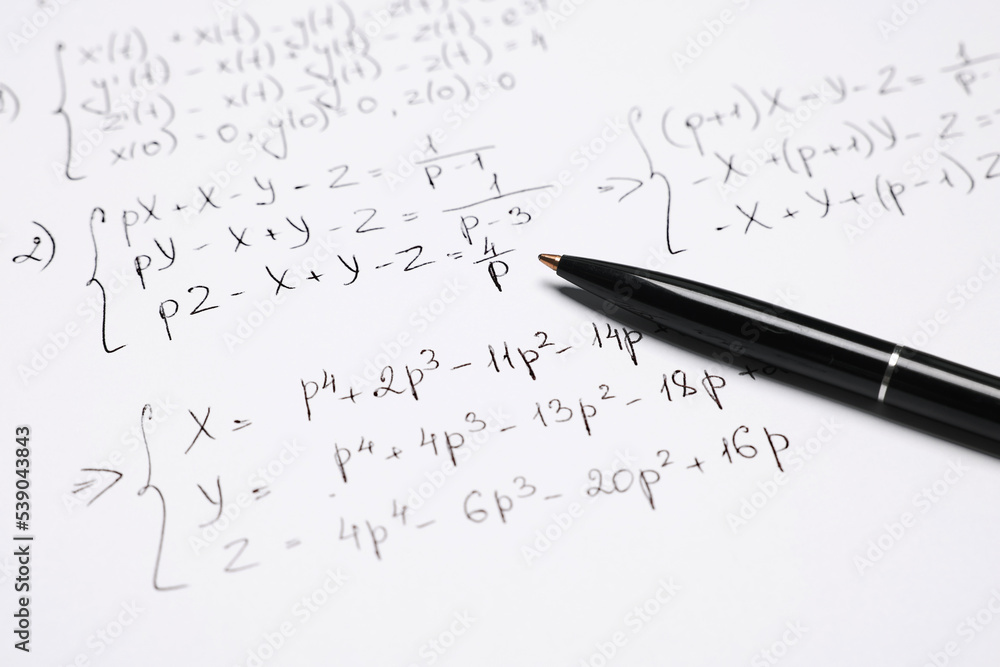 x'(t) + x(t) - y(t) - z(t) = e
y'(t) - x(t) + y(t) - z(t) = e^3t
z'(t) - x(t) - y(t) - z(t) = 4
x(0) = 0, y(0) = 0, z(0) = 0
2) { pX + X - Y - Z = 1/(p - 1)
pY - X + Y - Z = 1/(p - 3)
pZ - X + Y - Z = 4/p
=> { (p+1)X - Y - Z = 1/(p -
- X + (p+1)Y - Z =
- X + Y + (p-1)Z
=> { X = p⁴ + 2p³ - 11p² - 14p
Y = p⁴ + 4p³ - 13p² - 18p +
Z = 4p⁴ - 6p³ - 20p² + 16p
Adobe Stock | #539043843